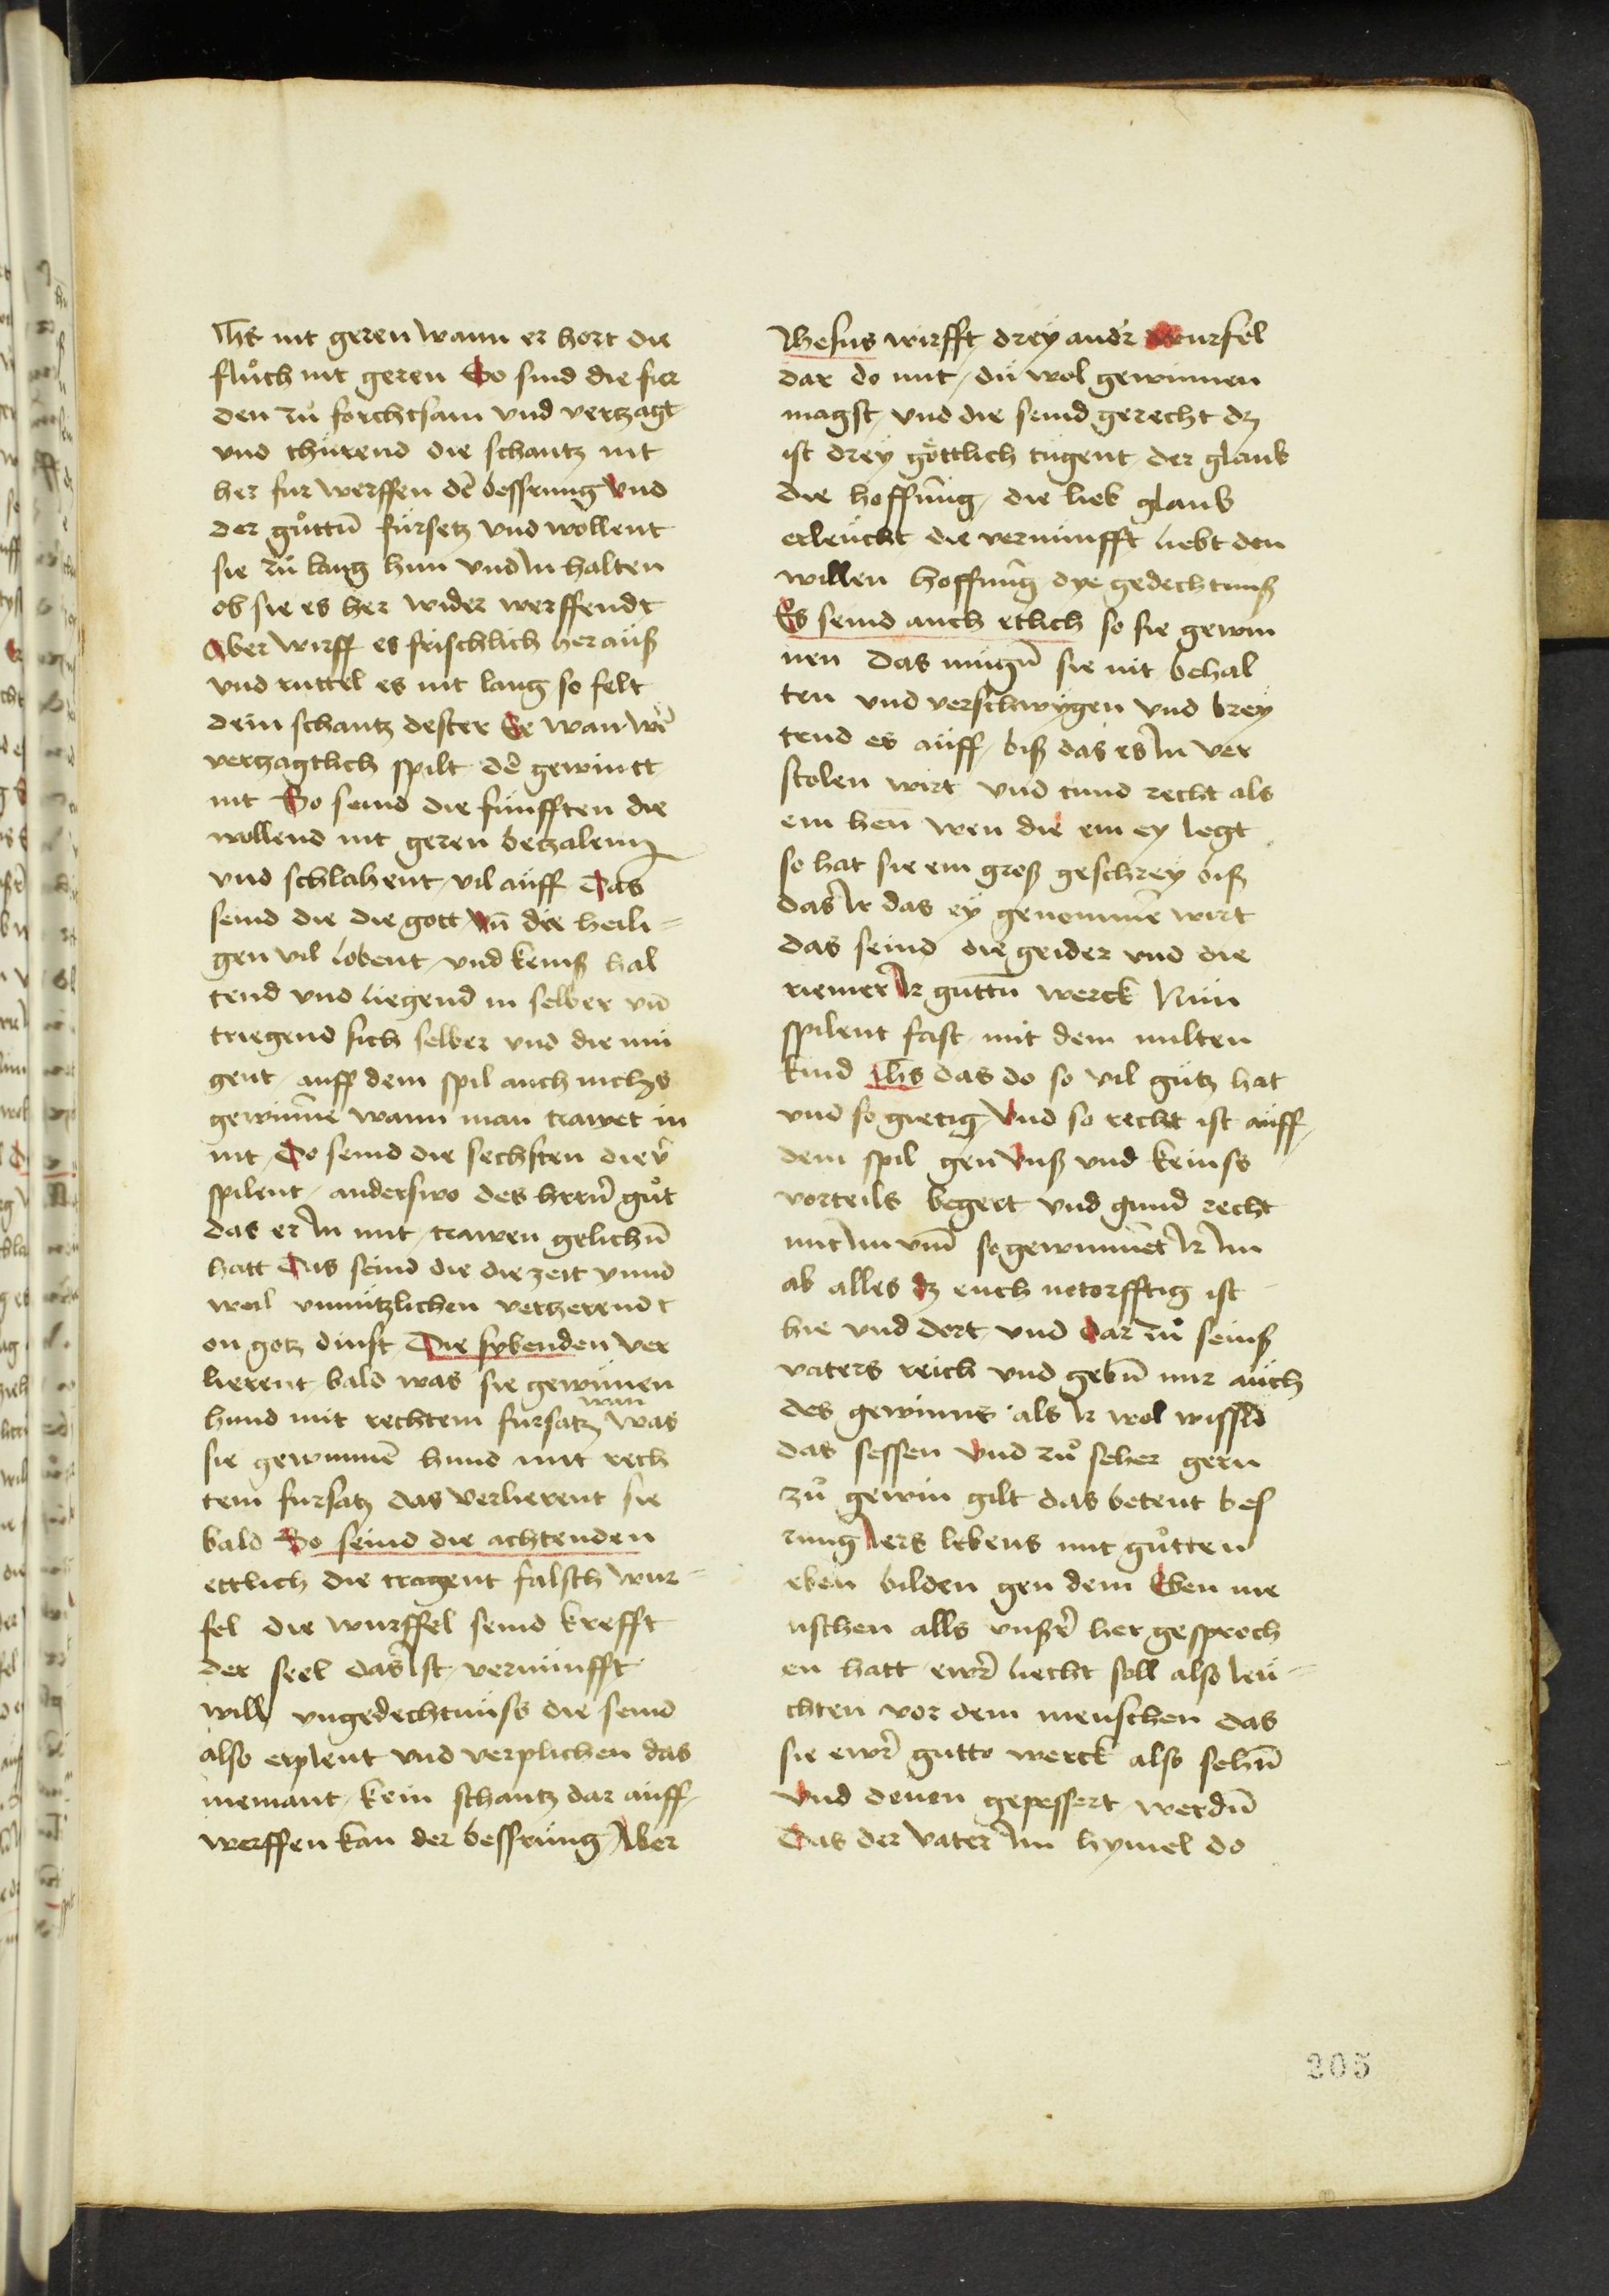 Jhs nit geren wann er hort die
fluͦch nit geren So sind die fier
den zuͦ forchtsam vnd vertzagt
vnd thürend die schantz nit
her fur werffen dē bessrung vnd
der guͦttn̄ fürsetz vnd wollent
sie zuͦ lang hnn vnd jn halten
ob sie es her wider werffendt
Aber wirff es frischlich herauß
vnd ruttel es nit lang so felt
dein schantz dester Ee wan wē
vertzagtlich spilt dē gewintt
nit So seind die fünfften die
wollend nit geren betzalenn
vnd schlahent vil auff Das
seind die die gott vn̄ die heili=
gen vil lobent vnd keinß hal
tend vnd liegend in selber vn̄
triegend sich selber vnd die mü
gent auff dem spil auch nichs
gewinnē wann man trawet in
nit Do seind die sechsten die v̄
spilent anderswo des hern̄ guͦt
das er jn mit trawen gelichn̄
hatt Das seind die die zeit vnnd
weil vnnützlichen vertzerendt
on gotz dinst Die sybenden ver
lierent bald was sie gewinnen
wan
hund mit rechtem fursatz was
sie gewinnē hund mit rech
tem fursatz das verlierent sie
bald So seind die achtenden
ettlich die tragent falsch wur=
fel die wurffel seind krefft
der seel das ist vernünfft
will vngedechtnüss die seind
also erplent vnd verplichen das
niemant kein schantz dar auff
werffen kan der bessrung Aber
Jhesus wirfft drey andr̄ wurfel
dar do mit du wol gewinnen
magst vnd die seind gerecht dz
ist drey göttlich tugent der glaub
die hoffnūg die lieb glaub
erleucht die vernünfft liebt den
willen hoffnūg dye gedechtniß
Es seind auch etlich so sie gewin
nen das mügn̄ sie nit behal
ten vnd verschwygen vnd brey
tend es auff biß das es jn ver
stolen wirt vnd tund recht als
ein hen̄ wen die ein ey legt
so hat sie ein groß geschrey biß
das ir das ey genommē wirt
das seind die geider vnd die
riemer ir guttn̄ werck Nun
spilent fast mit dem milten
kind Jhs das do so vil gutz hat
vnd so gietig vnd so recht ist auff
dem spil gen vnß vnd keinss
vorteils begert vnd gund recht
mit jm vm̄ so gewinnet ir jm
ab alles dz euch notorfftig ist
hie vnd dort vnd dar zuͦ seinß
vaters reich vnd gebn̄ mir auch
des gewinns als ir wol wissēd
das sessen vnd zuͦ seher gern
zuͦ gewin gilt das betent bes
rung iers lebens mit guͦtten
eben bilden gen dem Eben me
nschen alls vnßr̄ her gesproch
en hatt ewr̄ liecht soll also leü=
chten vor dem menschen das
sie ewr̄ gutte werck also sehn̄
vnd denen gepessert werdn̄
Das der vater jm hymel do
205